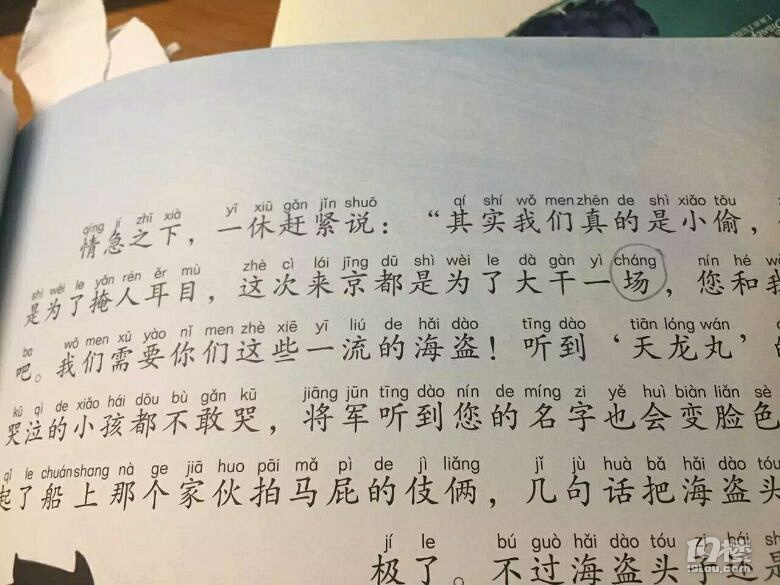 qíng jí zhī xià yī xiū gǎn jǐn shuō qí shí wǒ men zhēn de shì xiǎo tōu
情急之下，一休赶紧说：“其实我们真的是小偷，
shì wèi le yǎn rén ěr mù zhè cì lái jīng dū shì wèi le dà gàn yì cháng nín hé wǒ
是为了掩人耳目，这次来京都是为了大干一场，您和我
ba wǒ men xū yào nǐ men zhè xiē yī liú de hǎi dào tīng dào tiān lóng wán
吧。我们需要你们这些一流的海盗！听到‘天龙丸’的
kū qì de xiǎo hái dōu bù gǎn kū jiāng jūn tīng dào nín de míng zi yě huì biàn liǎn sè
哭泣的小孩都不敢哭，将军听到您的名字也会变脸色
qǐ le chuán shang nà ge jiā huo pāi mǎ pì de jì liǎng jǐ jù huà bǎ hǎi dào tóu
起了船上那个家伙拍马屁的伎俩，几句话把海盗头
jí le bú guò hǎi dào tóu zi hái sh
极了。不过海盗头子还是
19楼
19lou.com